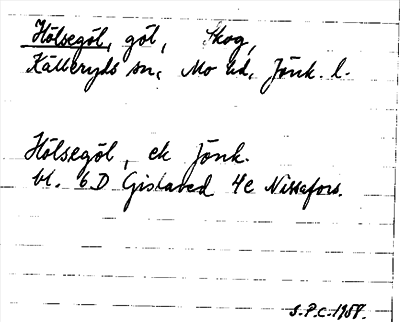 Hölsegöl, göl, Skog,
Källeryds sn, Mo hd, Jönk. l.
Hölsegöl, ek Jönk.
bl. 6D Gislaved 4e Nissafors.
S.P.C. 1987.